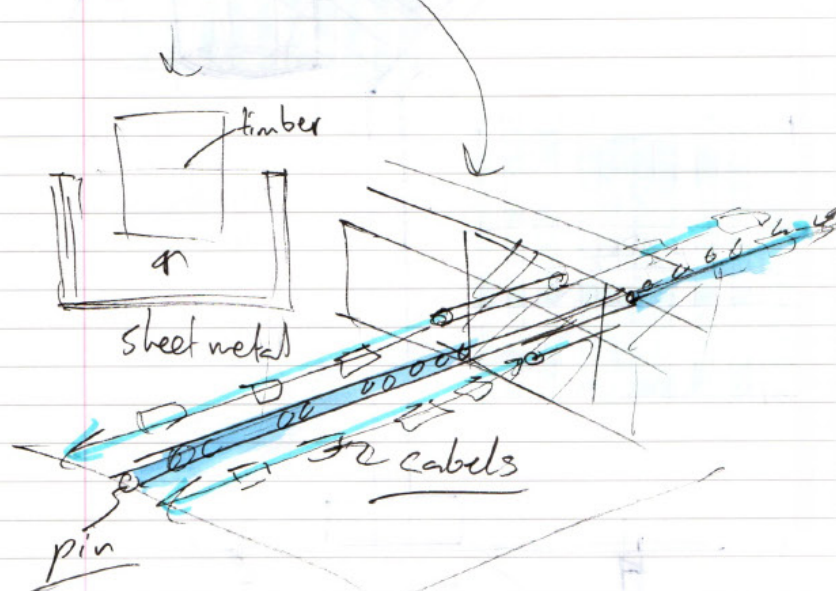 timber
sheet metal
2 cabels
pin